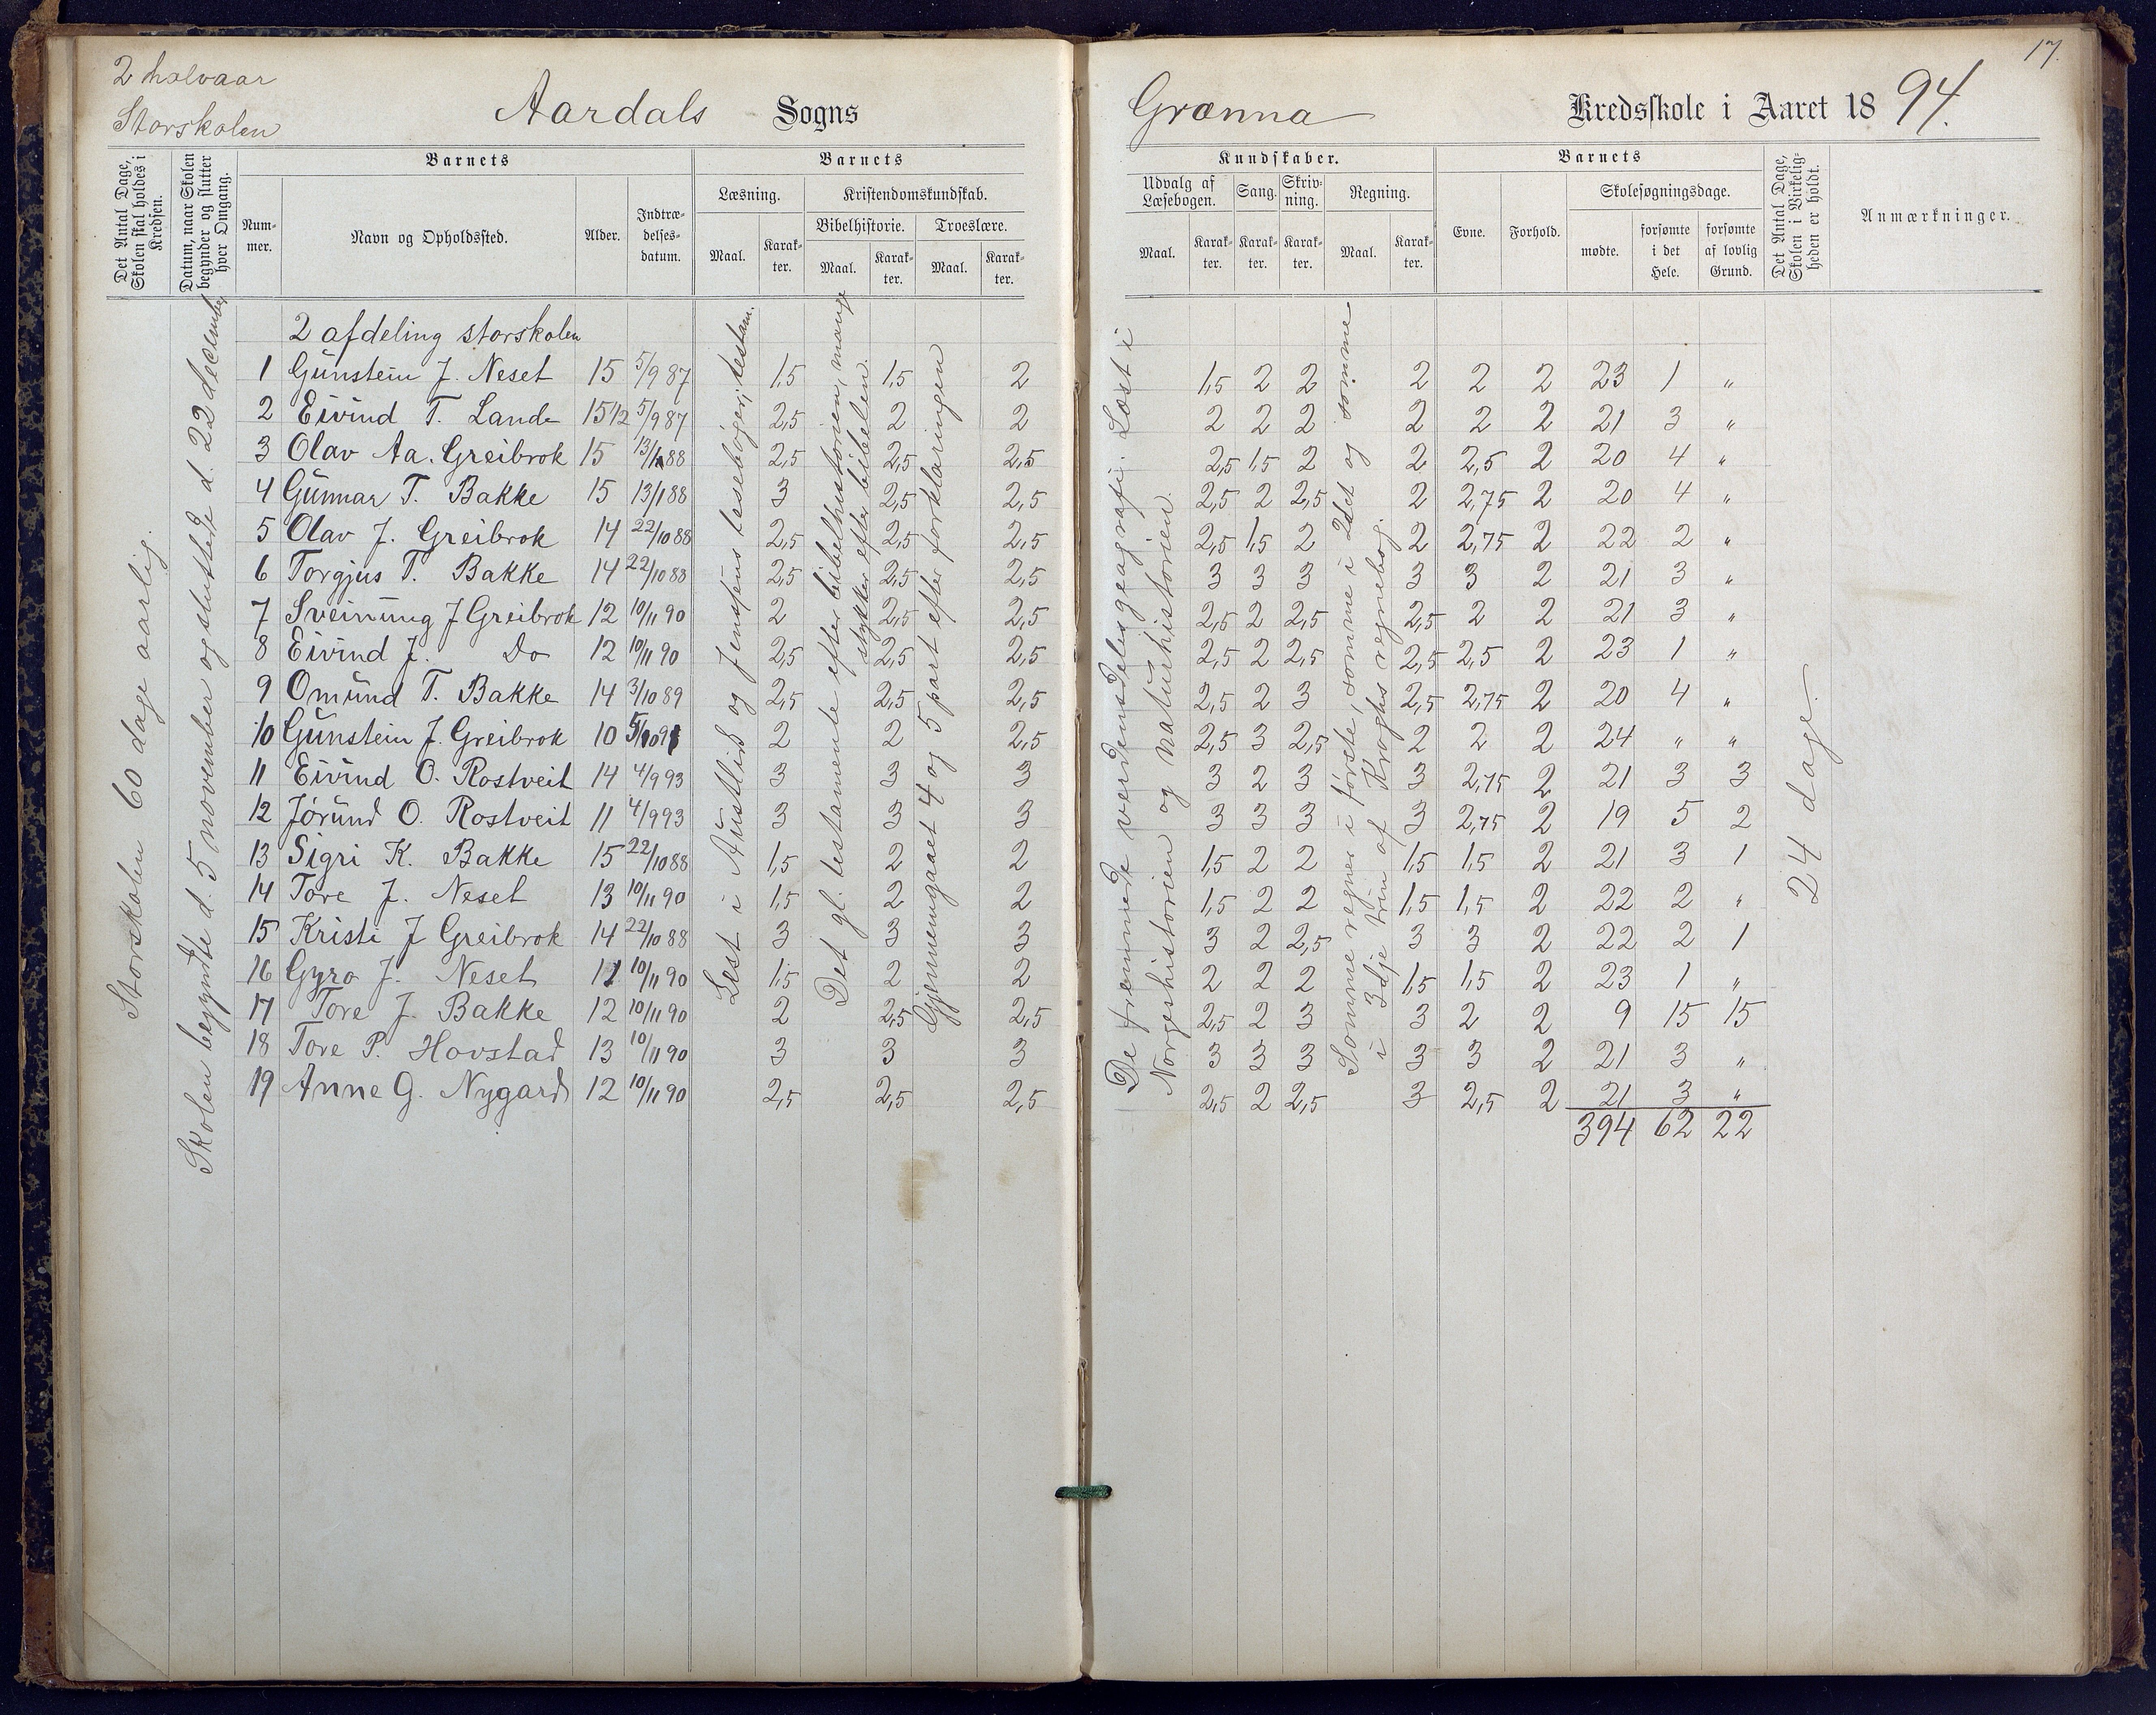 2 halvaar
Storskolen
Aardals Sogns
Grænna Kredsskole i Aaret 1894.
17.
Det Antal Dage, Skolen skal holdes i Kredsen.
Datum, naar Skolen begynder og slutter hver Omgang.
Barnets
Nummer.
Navn og Opholdssted.
Alder.
Indtrædelsesdatum.
Barnets
Læsning.
Maal.
Karakter.
Kristendomskundskab.
Bibelhistorie.
Maal.
Karakter.
Troeslære.
Maal.
Karakter.
Kundskaber.
Udvalg af Læsebogen.
Maal.
Karakter.
Sang.
Karakter.
Skrivning.
Karakter.
Regning.
Maal.
Karakter.
Barnets
Evne.
Forhold.
Skolesøgningsdage.
mødte.
forsømte i det Hele.
forsømte af lovlig Grund.
Det Antal Dage, Skolen i Virkeligheden er holdt.
Anmærkninger.
Storskolen 60 dage aarlig.
Skolen begynte d. 5 november og sluttede d. 22 december
Lest i Austlid og Jensens lesebøger, testam.
Det gl. testamente efter bibelhistorien, mange
stykker efter bibelen
Gjennemgaaet 4 og 5 part efter forklaringen
De fremmede verdensdeles geografi. Læst i
Norgeshistorien og naturhistorien.
Somme regner i første, somme i 2det og somme
i 3dje trin af Kroghs regnebog.
24 dage.
2 afdeling storskolen
1 Gunstein J. Neset 15 5/9 87 1,5 1,5 2 1,5 2 2 2 2 2 23 1 "
2 Eivind T. Lande 15 1/2 5/9 87 2,5 2 2 2 2 2 2 2 2 21 3 "
3 Olav Aa. Greibrok 15 13/1 88 2,5 2,5 2,5 2,5 1,5 2 2 2,5 2 20 4 "
4 Gunnar T. Bakke 15 13/1 88 3 2,5 2,5 2,5 2 2,5 2 2,75 2 20 4 "
5 Olav J. Greibrok 14 22/10 88 2,5 2,5 2,5 2,5 1,5 2 2 2,75 2 22 2 "
6 Torgjus T. Bakke 14 22/10 88 2,5 2,5 2,5 3 3 3 3 3 2 21 3 "
7 Sveinung J Greibrok 12 10/11 90 2 2,5 2,5 2,5 2 2,5 2,5 2 2 21 3 "
8 Eivind J. Do 12 10/11 90 2,5 2,5 2,5 2,5 2 2,5 2,5 2,5 2 23 1 "
9 Omund T. Bakke 14 3/10 89 2,5 2,5 2,5 2,5 2 3 2,5 2,75 2 20 4 "
10 Gunstein J. Greibrok 10 5/10 91 2 2 2,5 2,5 3 2,5 2 2 2 24 " "
11 Eivind O. Rostveit 14 4/9 93 3 3 3 3 2 3 3 2,75 2 21 3 3
12 Jørund O. Rostveit 11 4/9 93 3 3 3 3 3 3 3 2,75 2 19 5 2
13 Sigri K. Bakke 15 22/10 88 1,5 2 2 1,5 2 2 1,5 1,5 2 21 3 1
14 Tore J. Neset 13 10/11 90 1,5 2 2 1,5 2 2 1,5 1,5 2 22 2 "
15 Kristi J Greibrok 14 22/10 88 3 3 3 3 2 2,5 3 3 2 22 2 1
16 Gyro J. Neset 11 10/11 90 1,5 2 2 2 2 2 1,5 1,5 2 23 1 "
17 Tore J. Bakke 12 10/11 90 2 2,5 2,5 2,5 2 3 3 2 2 9 15 15
18 Tore P. Hovstad 13 10/11 90 3 3 3 3 3 3 3 3 2 21 3 "
19 Anne G. Nygard 12 10/11 90 2,5 2,5 2,5 2,5 2 2,5 3 2,5 2 21 3 "
394 62 22